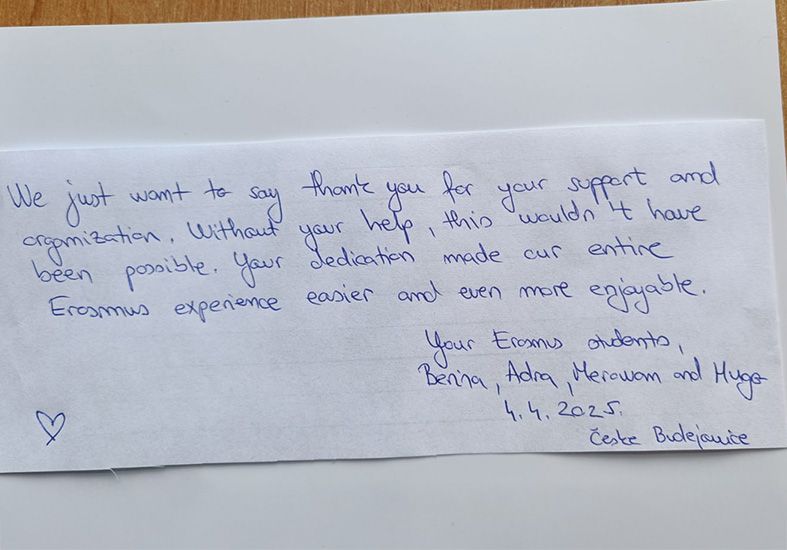 We just want to say thank you for your support and
organization. Without your help, this wouldn't have
been possible. Your dedication made our entire
Erasmus experience easier and even more enjoyable.
Your Erasmus students,
Berina, Adna, Merowam and Hugo
4.4.2025.
Česke Budejowice